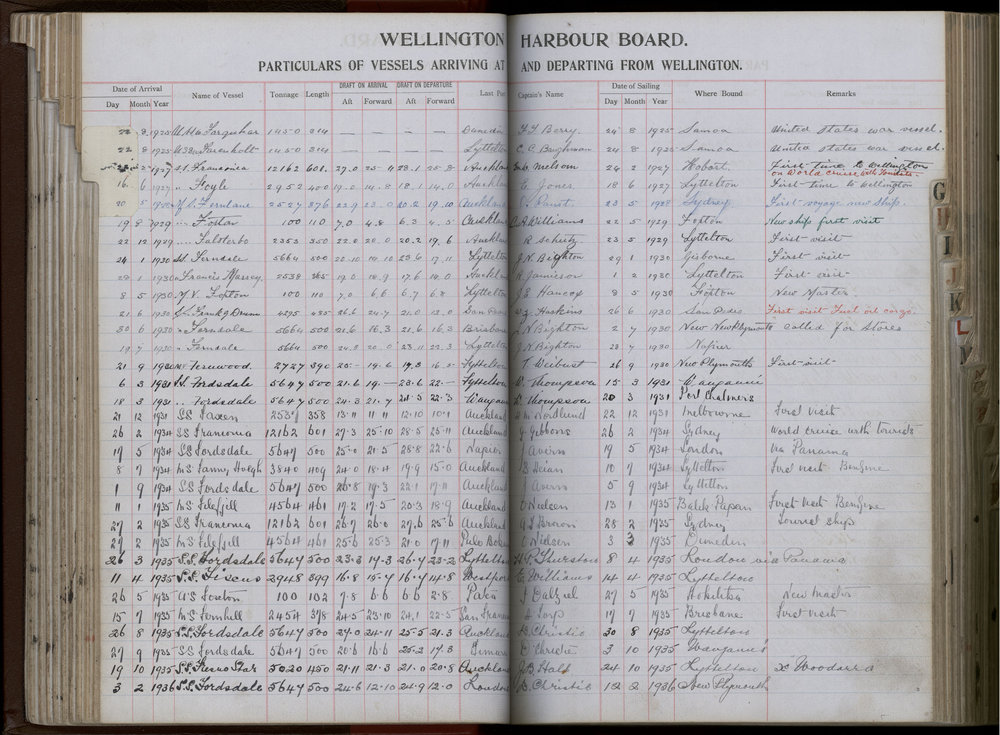 WELLINGTON HARBOUR BOARD.
PARTICULARS OF VESSELS ARRIVING AT AND DEPARTING FROM WELLINGTON.
Date of Arrival Name of Vessel Tonnage Length DRAFT ON ARRIVAL DRAFT ON DEPARTURE Last Port Captain's Name Date of Sailing Where Bound Remarks
Day Month Year Aft Forward Aft Forward Day Month Year
22 8 1925 Farquhar 1450 314 — — — — Dunedin Berry 24 8 1925 Samoa United States war vessel.
22 8 1925 1450 314 — — — — Lyttelton 24 8 1925 Samoa United States war vessel.
2 1927 Franconia 12162 601 27.0 25.4 28.1 25.8 Auckland 24 2 1927 Hobart First time to Wellington
on World Cruise with Tourists
16 6 1927 " Hoyle 2952 400 19.0 14.8 18.1 14.0 Auckland E Jones 18 6 1927 Lyttelton First time to Wellington
20 5 1928 Fernlane 22.9 23.0 20.2 19.10 Auckland 23 5 1928 Sydney First voyage new ship.
19 8 1929 Foxton 100 110 7.0 4.8 6.3 4.5 Auckland Williams 22 5 1929 Foxton New ship first visit
22 12 1929 Falsterbo 2353 350 22.0 20.0 20.2 19.6 Auckland R 23 5 1929 Lyttelton First visit
24 1 1930 Ferndale 5664 500 20.10 14.10 17.11 Lyttelton Bighton 29 1 1930 Gisborne First visit
1 1930 Francis Massey 2538 19.0 17.6 14.0 Auckland R Jamieson 1 2 1930 Lyttelton First visit
8 5 1930 M.V. Foxton 100 110 7.0 6.6 6.7 6.8 Lyttelton Hancox 8 5 1930 Foxton New Master.
21 6 1930 Frank G Drum 4295 485 26.6 24.7 21.0 Haskins 26 6 1930 San Pedro First visit Fuel oil cargo
30 6 1930 " Ferndale 5664 500 21.6 16.3 21.6 16.3 Brisbane Bighton 2 7 1930 New Plymouth called for stores
19 7 1930 " Ferndale 5664 500 24.8 20.0 23.11 22.3 Lyttelton Bighton 23 7 1930 Napier
21 9 1930 Fernwood 2727 390 Lyttelton 26 9 1930 New Plymouth First visit
6 3 1931 S.S. Fordsdale 5647 500 21.6 19.— 23.6 22.— Lyttelton Thompson 15 3 1931 Wanganui
18 3 1931 " Fordsdale 5647 500 24.3 21.7 22.3 Thompson 20 3 1931 Port Chalmers
21 12 1931 SS 358 13.11 11.11 12.10 10.1 Auckland 22 12 1931 Melbourne First visit
26 2 1934 SS Franconia 12162 601 27.3 25.10 28.5 25.11 Auckland Gibbons 26 2 1934 Sydney World cruise with tourists
17 5 1934 SS Fordsdale 5647 500 25.0 21.5 28.8 22.6 Napier Averns 19 5 1934 London via Panama
8 7 1934 MS Fanny Hoegh 3840 409 24.0 18.4 19.9 15.0 Auckland 10 7 1934 Lyttelton First visit Benzine
1 9 1934 SS Fordsdale 5647 500 26.8 19.3 22.1 17.11 Auckland Averns 5 9 1934 Lyttelton
11 1 1935 MS 4564 461 17.2 17.5 20.3 18.9 Auckland Nielsen 13 1 1935 Balik Papan First visit Benzine
27 2 1935 SS Franconia 12162 601 26.7 26.0 27.6 25.6 Auckland 28 2 1935 Sydney Tourist Ship
27 2 1935 MS 4564 461 25.6 25.3 21.0 17.11 Nielsen 3 3 1935 Dunedin
26 3 1935 S.S. Fordsdale 5647 500 23.3 19.3 26.4 23.2 Lyttelton Thurston 8 4 1935 London via Panama
11 4 1935 S.S. 2948 399 16.8 15.7 16.4 14.8 Westport Williams 14 4 1935 Lyttelton
26 5 1935 Foxton 100 102 7.8 6.6 6.6 2.8 Patea J Dalziel 27 5 1935 Hokitika New Master
15 7 1935 MS Fernhill 2454 378 24.5 23.10 24.1 22.5 San 17 7 1935 Brisbane First visit
26 8 1935 S.S. Fordsdale 5647 500 27.0 24.11 25.5 21.3 Auckland Christie 30 8 1935 Lyttelton
27 9 1935 SS Fordsdale 5647 500 20.6 16.6 25.2 17.3 Timaru Christie 3 10 1935 Wanganui
19 10 1935 S.S. Fresno Star 5020 450 21.11 21.3 21.0 20.8 Auckland 24 10 1935 Lyttelton
3 2 1936 S.S. Fordsdale 5647 500 24.6 12.10 24.9 12.0 London Christie 12 2 1936 New Plymouth
G
I
J
K
L